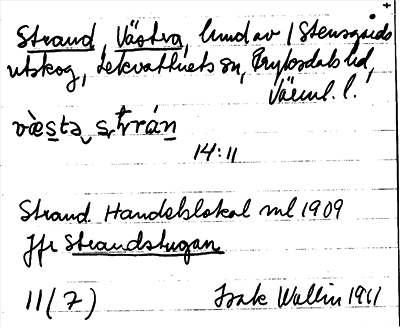 Strand, Västra, hmd av / Stensgårds
utskog, Lekvattnets sn, Fryksdals hd,
Värml. l.
væ̀sta strrán
14:11
Strand Handelslokal ml 1909
Jfr Strandstugan
11(7) Isak Wallin 1911